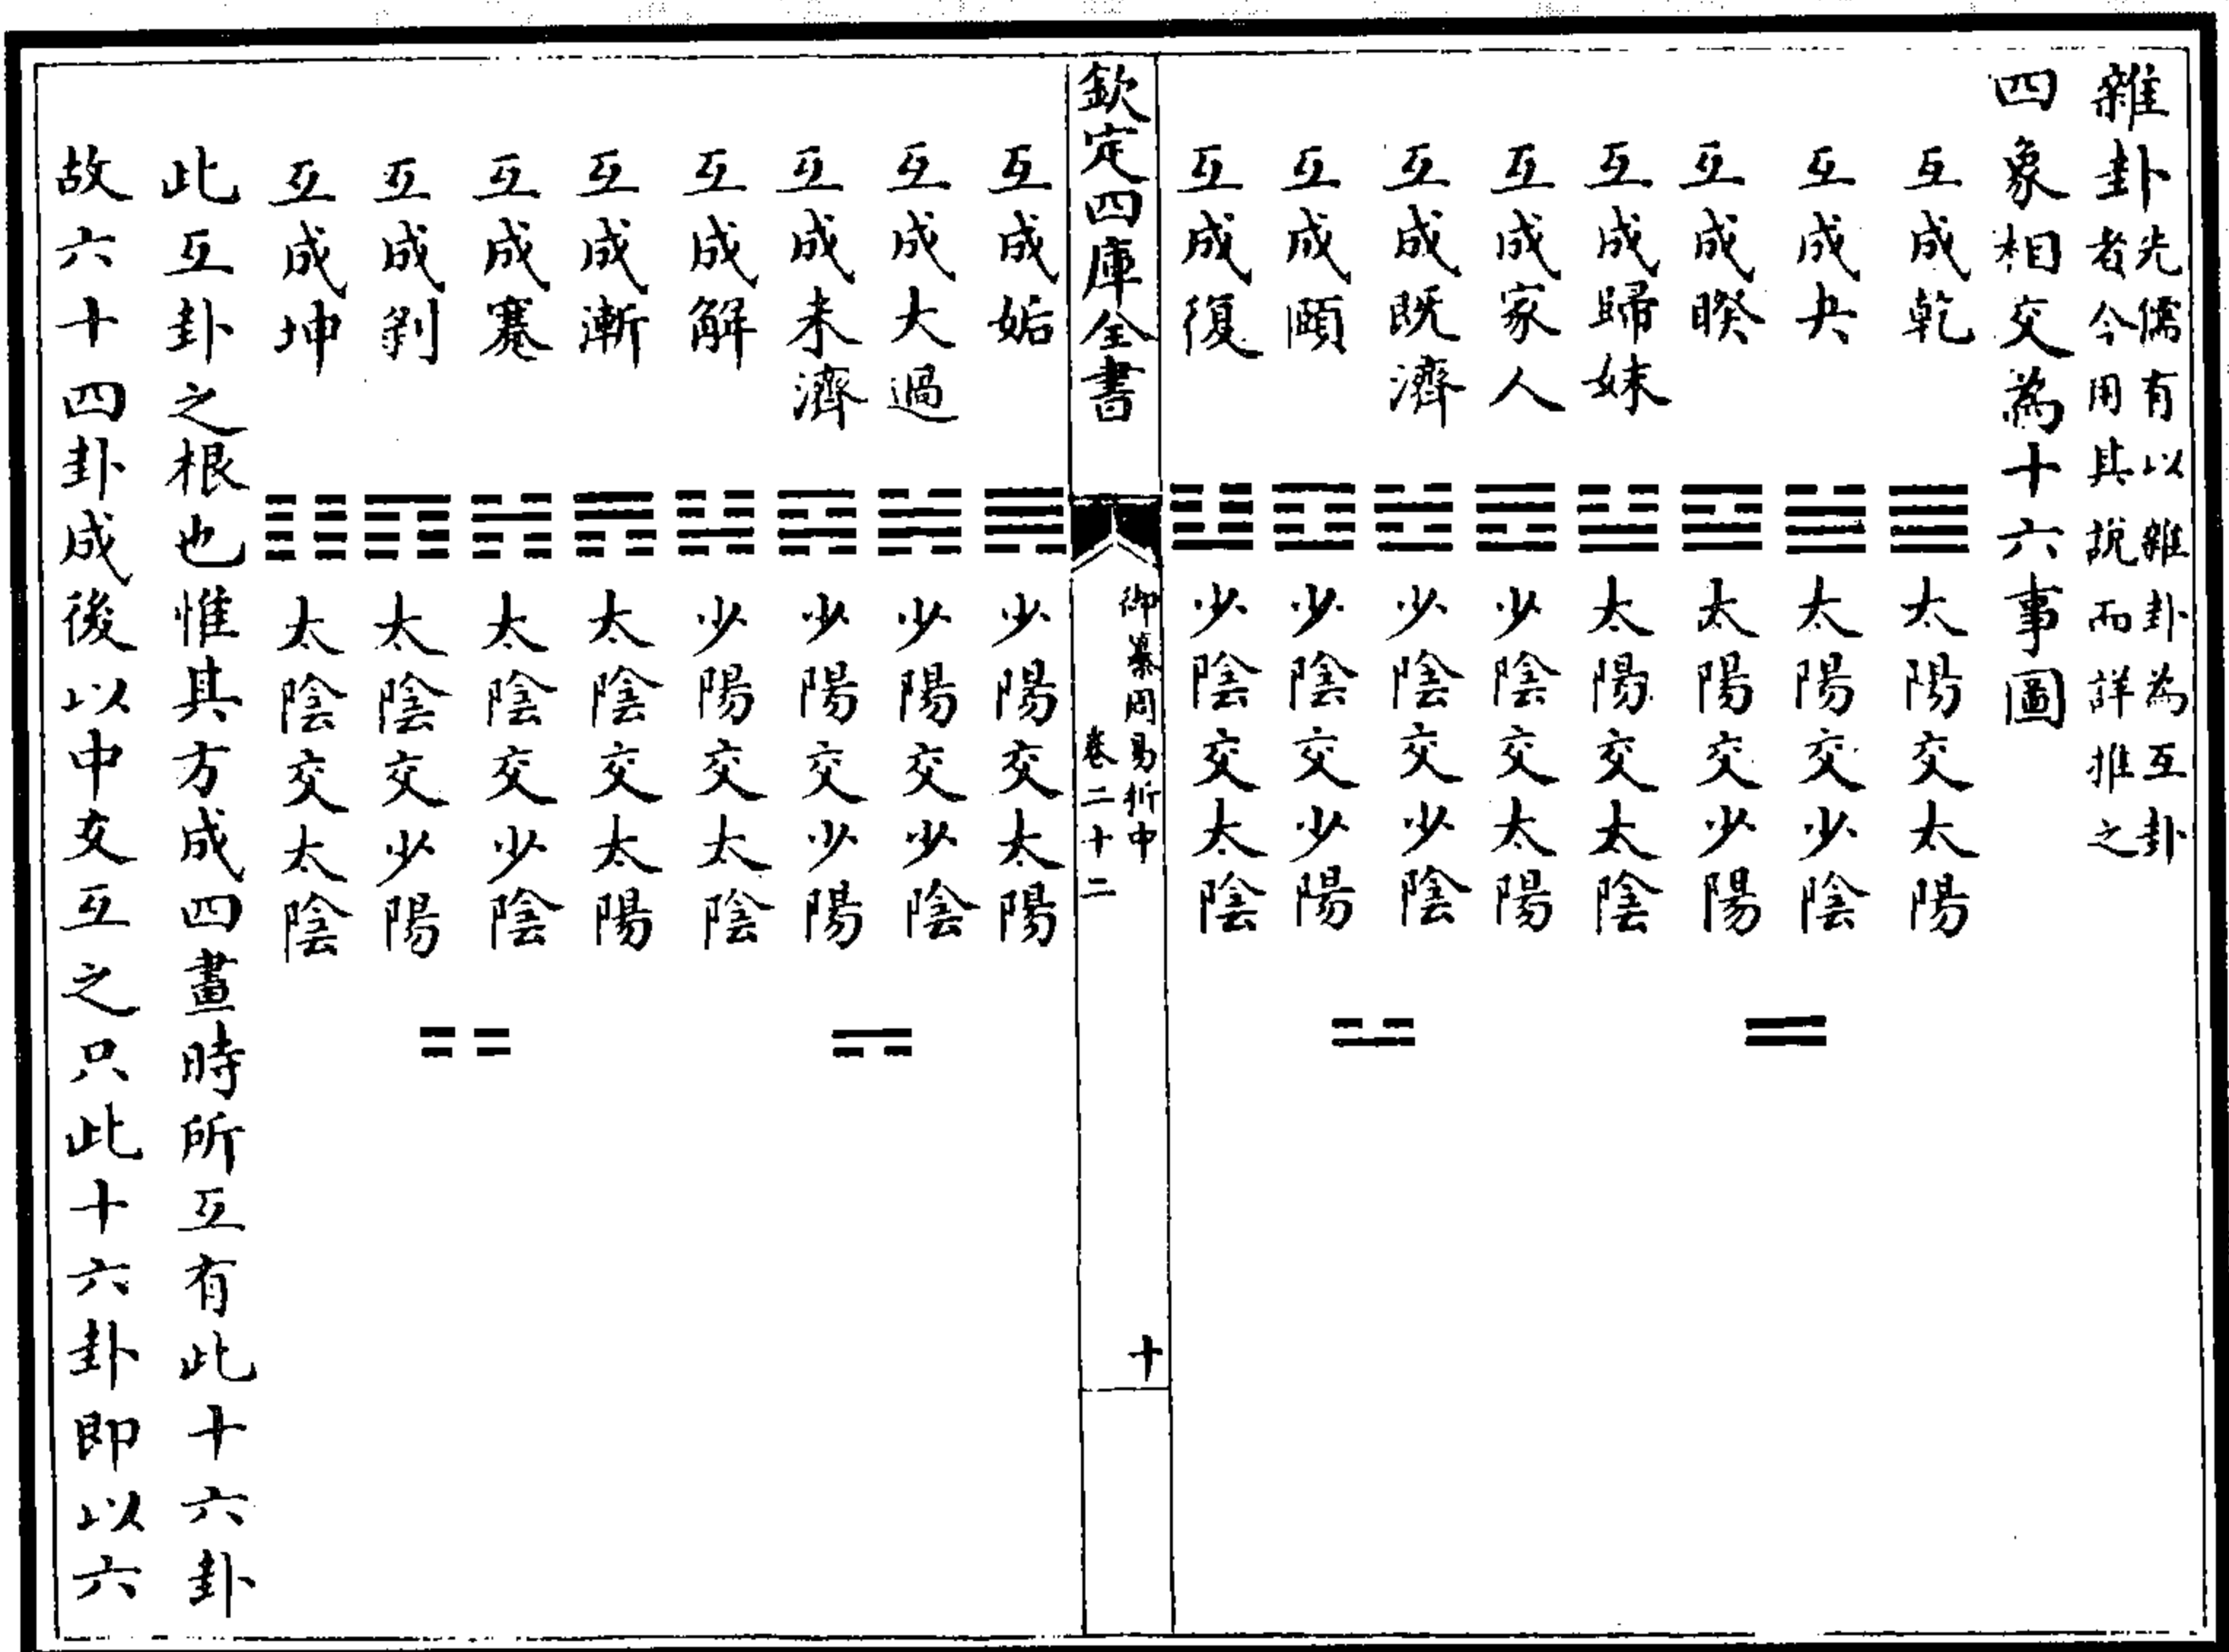 雜卦先儒有以雜卦為互卦
者今用其說而詳推之
四象相交為十六事圖
互成乾 太陽交太陽
互成夬 太陽交少陰
互成睽 太陽交少陽
互成歸妹 太陽交太陰
互成家人 少陰交太陽
互成既濟 少陰交少陰
互成頤 少陰交少陽
互成復 少陰交太陰
欽定四庫全書
御纂周易折中
卷二十二
十
互成姤 少陽交太陽
互成大過 少陽交少陰
互成未濟 少陽交少陽
互成解 少陽交太陰
互成漸 太陰交太陽
互成蹇 太陰交少陰
互成剝 太陰交少陽
互成坤 太陰交太陰
此互卦之根也惟其方成四畫時所互有此十六卦
故六十四卦成後以中爻互之只此十六卦即以六